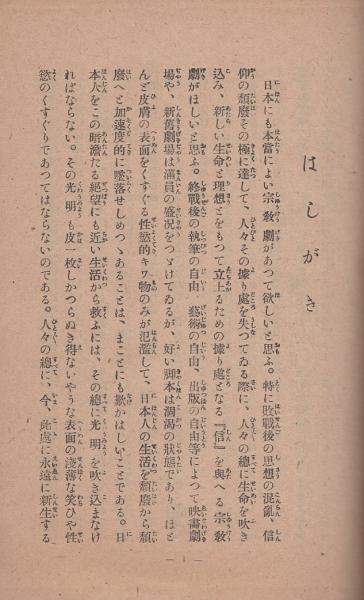 はしがき
日本にも本當によい宗敎劇があつて欲しいと思ふ。特に敗戰後の思想の混亂、信
仰の頽廢その極に達して、人々その據り處を失つてゐる際に、人々の總に生命を吹き
込み、新しい生命と理想とをもつて立上るための據り處となる『信』を與へる宗敎
劇がほしいと思ふ。終戰後の執筆の自由、藝術の自由、出版の自由等によつて映畫劇
場や、新舊劇場は滿員の盛況をつゞけてゐるが、好い脚本は涸渴の狀態であり、ほと
んど皮膚の表面をくすぐる性慾的キワ物のみが氾濫して、日本人の生活を頽廢から頽
廢へと加速度的に墜落せしめつゝあることは、まことにも歎かはしいことである。日
本人をこの暗澹たる絕望にも近い生活から救ふには、その總に光明を吹き込まなけ
ればならない。その光明も皮一枚しかつらぬき得ないやうな表面の淺薄な笑ひや性
慾のくすぐりであつてはならないのである。人々の總に、今、此處に永遠に新生する
— 1 —